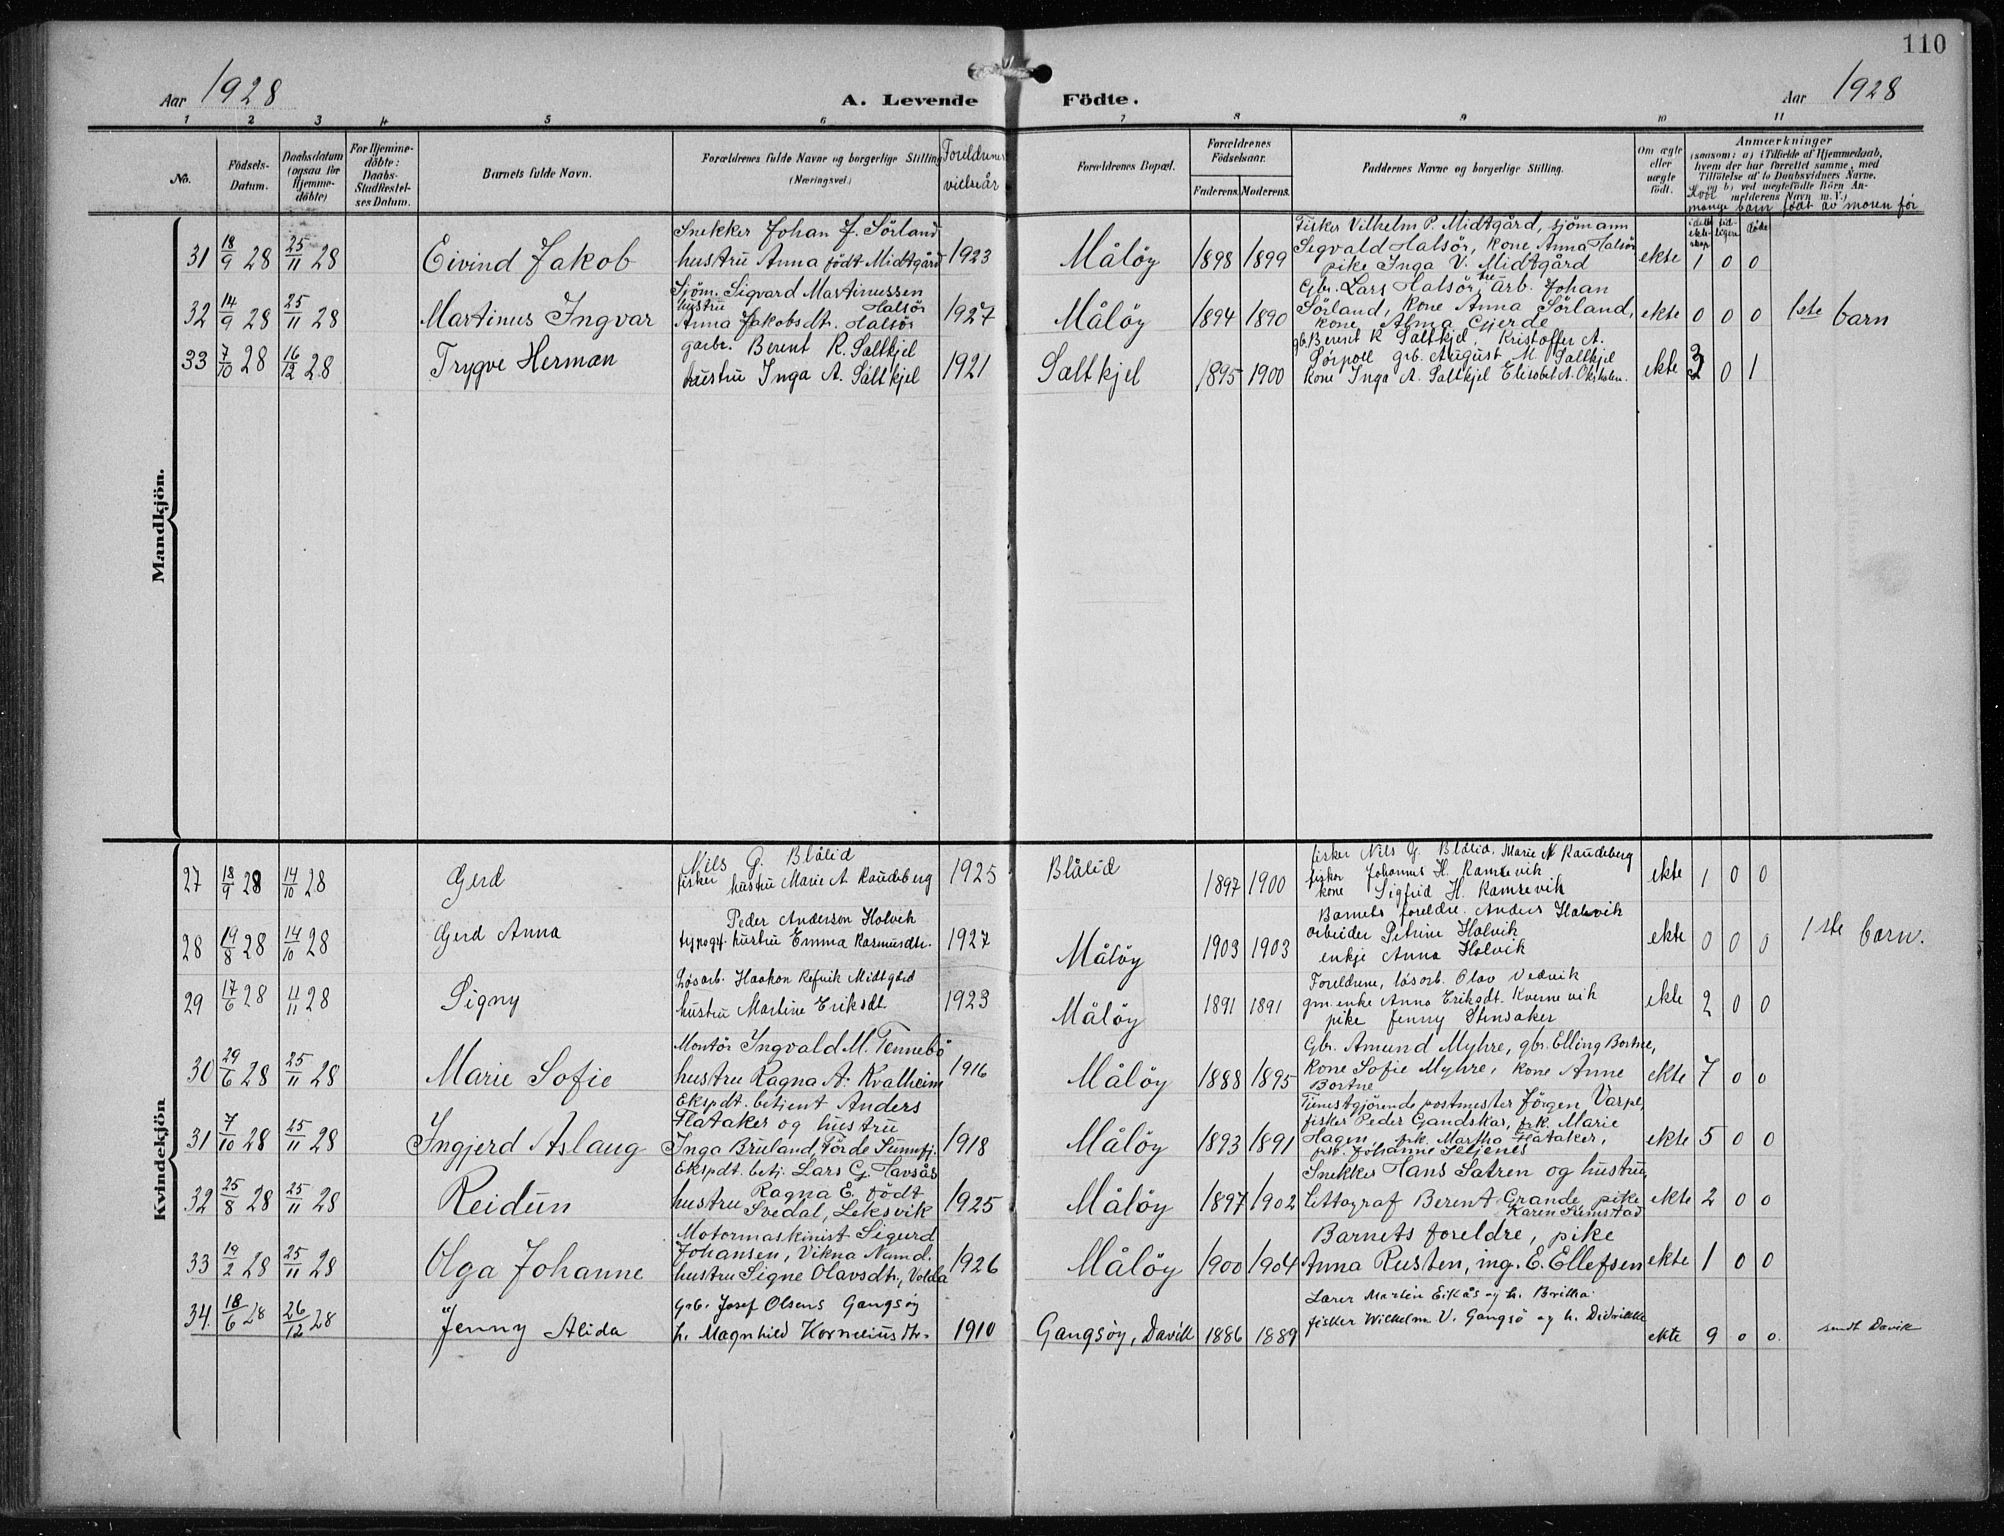 110
Aar 1928
A. Levende Födte.
Aar 1928
1 2 3 4 5 6 7 8 9 10 11
No.
Födsels-
Datum.
Daabsdatum
(ogsaa for
Hjemme-
döbte)
For Hjemme-
döbte:
Daabs-
Stadfæstel-
ses Datum.
Barnets fulde Navn.
Forældrenes fulde Navne og borgerlige Stilling
(Næringsvei.)
Foreldrenes
vielsesår
Forældrenes Bopæl.
Forældrenes
Födselsaar.
Faderens. Moderens.
Faddernes Navne og borgerlige Stilling.
Om ægte
eller
uægte
födt.
Anmærkninger
(saasom: a) i Tilfælde af Hjemmedaab,
hvem der har forrettet samme, med
Tilföielse af to Daabsvidners Navne,
og b) ved uægtefödte Börn An-
melderens Navn m. V.)
Hvor
mange barn født av moren før
Mandkjön.
31 18/9 28 25/11 28 Eivind Jakob
Snekker Johan J. Sörland
hustru Anna födt Midtgård
1923 Målöy 1898 1899
Fisker Vilhelm P. Midtgård, sjömann
Sigvald Halsör, kone Anna Halsör
pike Inga V. Midtgård
ekte 1 0 0
32 14/9 28 25/11 28 Martinus Ingvar
Sjöm. Sigvard Martinussen
hustru Halsör
Anna Jakobsdtr. Halsör
1927 Målöy 1894 1890
Gbr. Lars Halsör, arb. Johan
Sörland, kone Anna Sörland,
kone Alma Gjerde
ekte 0 0 0 1ste barn
33 7/10 28 16/12 28 Trygve Herman
garbr. Berent R. Saltkjel
hustru Inga A. Saltkjel
1921 Saltkjel 1895 1900
gb. Berent R Saltkjel, Kristoffer A.
Sørpoll grb. August M. Saltkjel
kone Inga A. Saltkjel Elisabet A.
ekte 3 0 1
Kvindekjön
27 18/9 28 14/10 28 Gerd
Nils G. Blålid
fisker hustru Marie A. Raudeberg
1925 Blålid 1897 1900
fisker Nils G. Blålid. Marie A Raudeberg
fisker Johannes H. Ramsevik
kone Sigfrid H. Ramsevik
ekte 1 0 0
28 19/8 28 14/10 28 Gerd Anna
Peder Anderson Holvik
typogr. hustru Emma Rasmusdtr.
1927 Målöy 1903 1903
Barnets foreldre. Anders Holevik
arbeider Petrine Holvik
enkje Anna Holvik
ekte 0 0 0 1ste barn.
29 17/6 28 4/11 28 Signy
Løsarb. Haakon Refvik Midtgård
hustru Martine Eriksdt.
1923 Målöy 1891 1891
Foreldrene, løsarb. Olav Vedvik
gm. enke Anna Eriksdt. Kvernevik
pike Jenny Stensaker
ekte 2 0 0
30 29/6 28 25/11 28 Marie Sofie
Montör Ingvald M. Tennebö
hustru Ragna A. Kvalheim
1916 Målöy 1888 1895
Gbr. Amund Myhre, gbr. Elling Bortne,
kone Sofie Myhre, kone Anne
Bortne
ekte 7 0 0
31 7/10 28 25/11 28 Ingjerd Aslaug
Ekspdt. betjent Anders
Flataker og hustru
Inga Bruland, Förde Sunnfj.
1918 Målöy 1893 1891
Tjenestgjörende postmester Jörgen Varpe,
fisker Peder Gandskar, frk. Marie
Hagen, frk. Martha Flataker,
frk. Johanne Seljenes
ekte 5 0 0
32 25/8 28 25/11 28 Reidun
Ekspdt. betj. Lars G. Havsås
hustru Ragna E. födt
Svedal, Leksvik
1925 Målöy 1897 1902
Snekker Hans Satren og hustru,
Littograf Berent Grande, pike
Karen Sumstad
ekte 2 0 0
33 19/2 28 25/11 28 Olga Johanne
Motormaskinist Sigurd
Johansen, Vikna Namd.
hustru Signe Olavsdtr, Volda
1926 Målöy 1900 1904
Barnets foreldre, pike
Anna Rusten, ing. E. Ellefsen
ekte 1 0 0
34. 18/6 28 26/12 28 Jenny Alida
Grb. Josef Olsens Gangsøy
h. Magnhild Kornelius dtr.
1910 Gangsøy, Davik 1886 1889
Lærer Martin Eikås og h. Beritha.
fisker Wilhelm V. Gangsö og h. Didrikke
ekte 9 0 0. sendt Davik